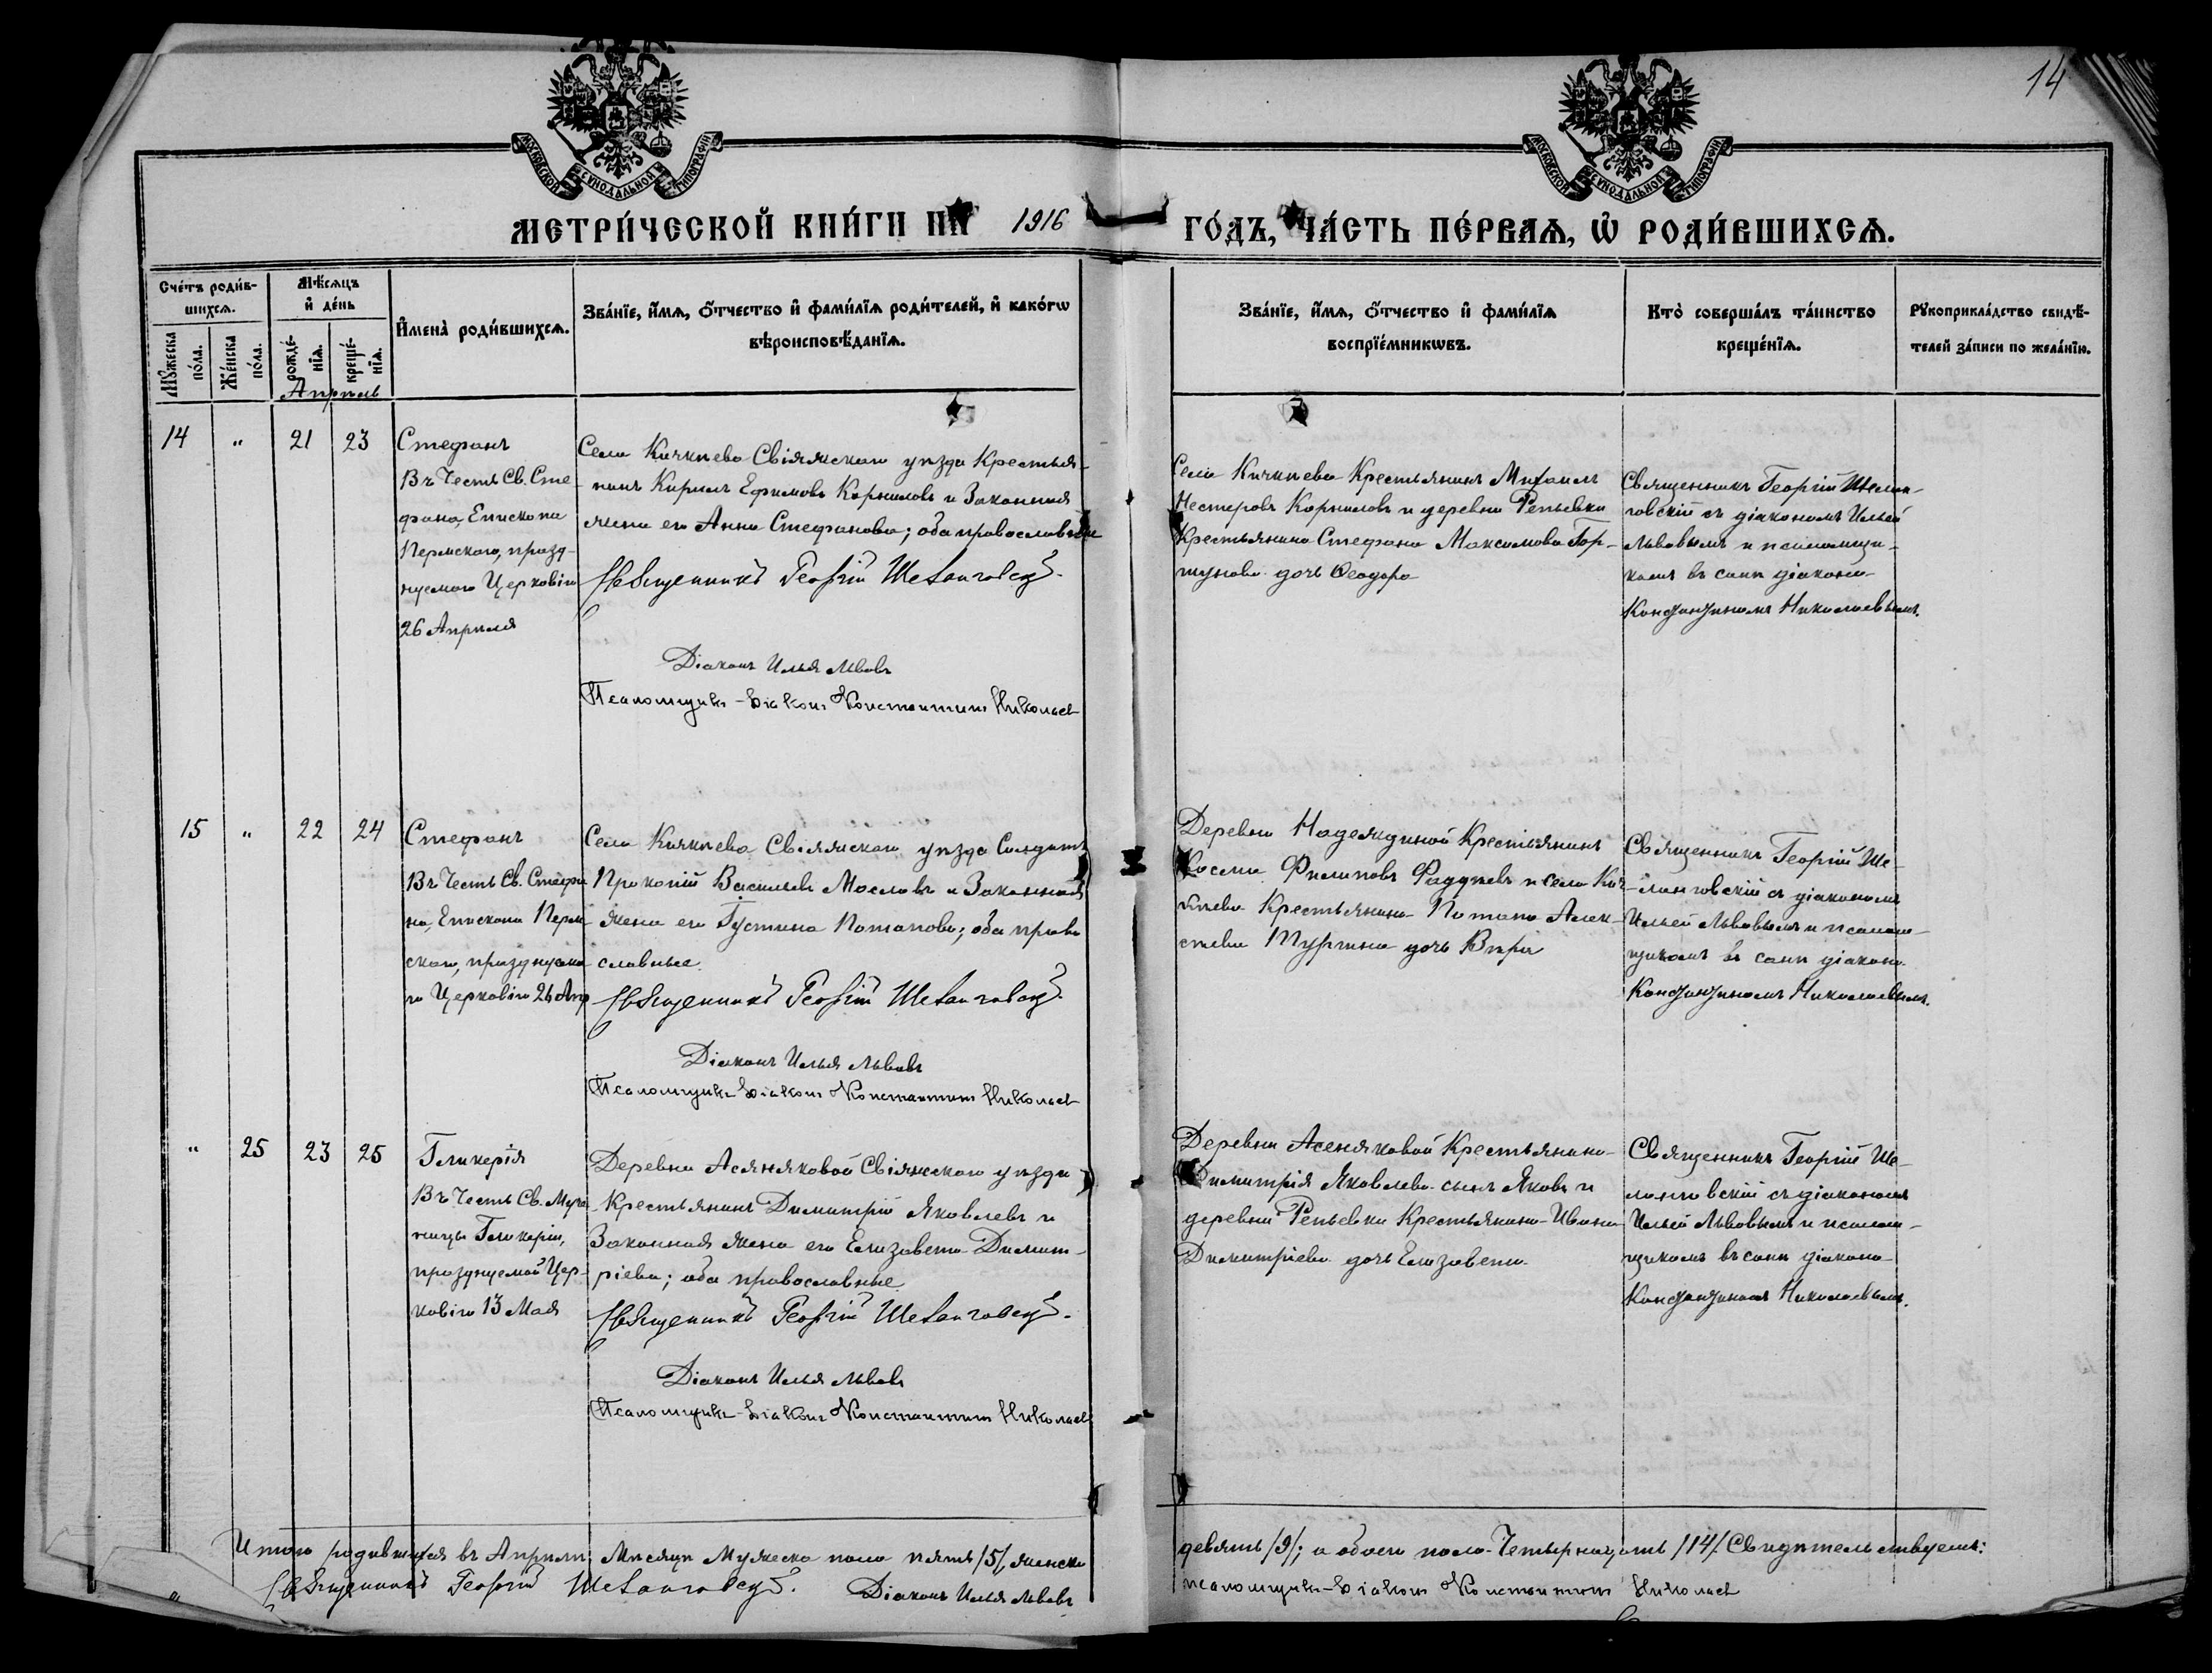 14
МОСКОВСКОЙ СУНОДАЛЬНОЙ ТИПОГРАФІИ
МОСКОВСКОЙ СУНОДАЛЬНОЙ ТИПОГРАФІИ
МЕТРИ́ЧЕСКОЙ КНИ́ГИ НА 1916 ГО́ДЪ, ЧА́СТЬ ПЕ́РВАѦ, Ѡ РОДИ́ВШИХСѦ.
Сче́тъ роди́в-
шихсѧ.
Мѹ́жеска по́ла.
Же́нска по́ла.
Мѣ́сѧцъ
и де́нь
рожде́-
нїѧ.
креще́-
нїѧ.
Имена̀ роди́вшихсѧ.
Зва́нїе, и́мѧ, о́тчество и фами́лїѧ роди́телей, и како́гѡ
вѣроисповѣ́данїѧ.
Зва́нїе, и́мѧ, о́тчество и фами́лїѧ
воспрїе́мникѡвъ.
Кто̀ соверша́лъ та́инство
креще́нїѧ.
Рѹкоприкла́дство свидѣ́-
телей за́писи по жела́нїю.
Апрѣль
14 " 21 23
Стефанъ
Въ Честь Св. Сте
фана, Епископа
Пермскаго, празд-
нуемаго Церковію
26 Апрѣля
Села Кичкѣева Свіяжскаго уѣзда Крестья-
нинъ Кирилъ Ефимовъ Корниловъ и Законная
жена его Анна Стефанова; оба православные
Священникъ Георгій Шеланговскій.
Діаконъ Илья Львовъ
Псаломщикъ-діаконъ Константинъ Николаев
Села Кичкѣева Крестьянинъ Михаилъ
Нестеровъ Корниловъ и деревни Репьевки
Крестьянина Стефана Максимова Гор-
шунова дочь Ѳеодора
Священникъ Георгій Шелан-
говскій съ діакономъ Ильей
Львовымъ и псаломщи-
комъ въ санѣ діакона
Константиномъ Николаевымъ.
15 " 22 24
Стефанъ
Въ Честь Св. Стефа
на, Епископа Перм-
скаго, празднуема
го Церковію 26 Апр
Села Кичкѣева Свіяжскаго уѣзда Солдатъ
Прокопій Васильевъ Масловъ и Законная
жена его Іустина Потапова; оба право
славные
Священникъ Георгій Шеланговскій.
Діаконъ Илья Львовъ
Псаломщикъ-діаконъ Константинъ Николаев
Деревни Надеждиной Крестьянинъ
Косма Филиповъ Фаддѣевъ и села Кич
кѣева Крестьянина Потапа Алек-
сѣева Тургина дочь Вѣра
Священникъ Георгій Ше-
ланговскій съ діакономъ
Ильей Львовымъ и псалом-
щикомъ въ санѣ діакона
Константиномъ Николаевымъ.
" 25 23 25
Гликерія
Въ Честь Св. Муче
ницы Гликеріи,
празднуемой Цер-
ковію 13 Мая
Деревни Асяняковой Свіяжскаго уѣзда
Крестьянинъ Димитрій Яковлевъ и
Законная жена его Елизавета Димит-
ріева; оба православные
Священникъ Георгій Шеланговскій.
Діаконъ Илья Львовъ
Псаломщикъ-діаконъ Константинъ Николаев
Деревни Асеняковой Крестьянина
Димитрія Яковлева сынъ Яковъ и
деревни Репьевки Крестьянина Ивана
Димитріева дочь Елизавета
Священникъ Георгій Ше-
ланговскій съ діакономъ
Ильей Львовымъ и псалом-
щикомъ въ санѣ діакона
Константиномъ Николаевымъ.
Итого родившихся въ Апрѣлѣ Мѣсяцѣ Мужеска пола пять /5/, женска
девять /9/; а обоего пола Четырнадцать /14/. Свидѣтельствуемъ:
Священникъ Георгій Шеланговскій. Діаконъ Илья Львовъ
псаломщикъ-діаконъ Константинъ Николаев